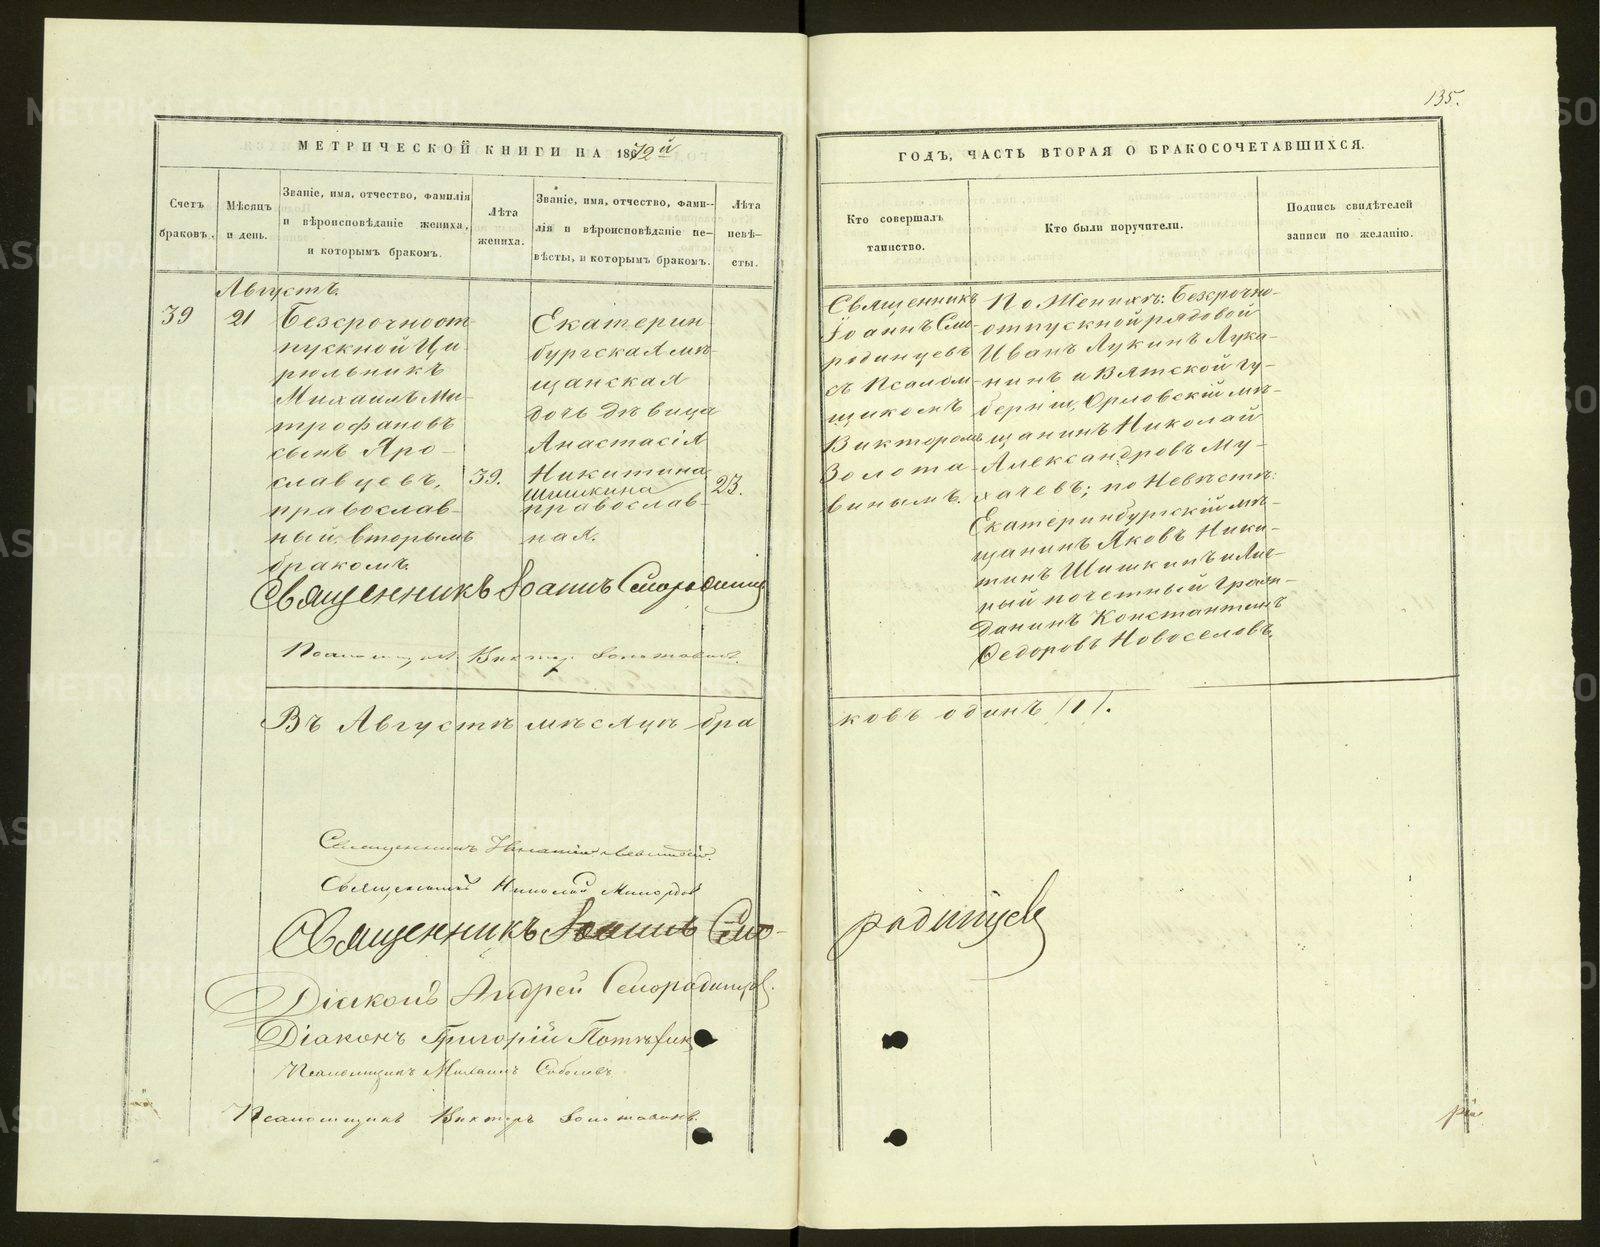 135.
МЕТРИЧЕСКОЙ КНИГИ НА 1872й
ГОДЪ, ЧАСТЬ ВТОРАЯ О БРАКОСОЧЕТАВШИХСЯ.
Счетъ
браковъ.
Мѣсяцъ
и день.
Званіе, имя, отчество, фамилія
и вѣроисповѣданіе жениха,
и которымъ бракомъ.
Лѣта
жениха.
Званіе, имя, отчество, фами-
лія и вѣроисповѣданіе не-
вѣсты, и которымъ бракомъ.
Лѣта
невѣ-
сты.
Кто совершалъ
таинство.
Кто были поручители.
Подпись свидѣтелей
записи по желанію.
Августъ.
39
21
Безсрочноот
пускной Ци-
рюльникъ
Михаилъ Ми-
трофановъ
сынъ Яро-
славцевъ,
православ-
ный, вторымъ
бракомъ.
39.
Екатерин
бургская мѣ-
щанская
дочь дѣвица
Анастасія
Никитина
Шишкина
православ-
ная.
23.
Священникъ
Іоаннъ Смо-
родинцевъ
съ Псалом-
щикомъ
Викторомъ
Золота-
винымъ.
По Женихѣ: Безсрочно-
отпускной рядовой
Иванъ Лукинъ Лука-
нинъ и Вятской гу-
берніи, Орловскій мѣ-
щанинъ Николай
Александровъ Му-
хачевъ; по Невѣстѣ:
Екатеринбургскій мѣ-
щанинъ Яковъ Ники-
тинъ Шишкинъ и Лич-
ный почетный граж-
данинъ Константинъ
Ѳедоровъ Новоселовъ.
Священникъ Іоаннъ Смородинцевъ
Псаломщикъ Викторъ Золотавинъ.
Въ Августѣ мѣсяцѣ бра
ковъ одинъ /1/.
Священникъ Игнатій Левитскій.
Священникъ Николай
Священникъ Іоаннъ Смо-
родинцевъ
Діаконъ Андрей Смородинцевъ.
Діаконъ Григорій
Псаломщикъ Михаилъ Соболевъ
Псаломщикъ Викторъ Золотавинъ.
METRIKI.GASO-URAL.RU